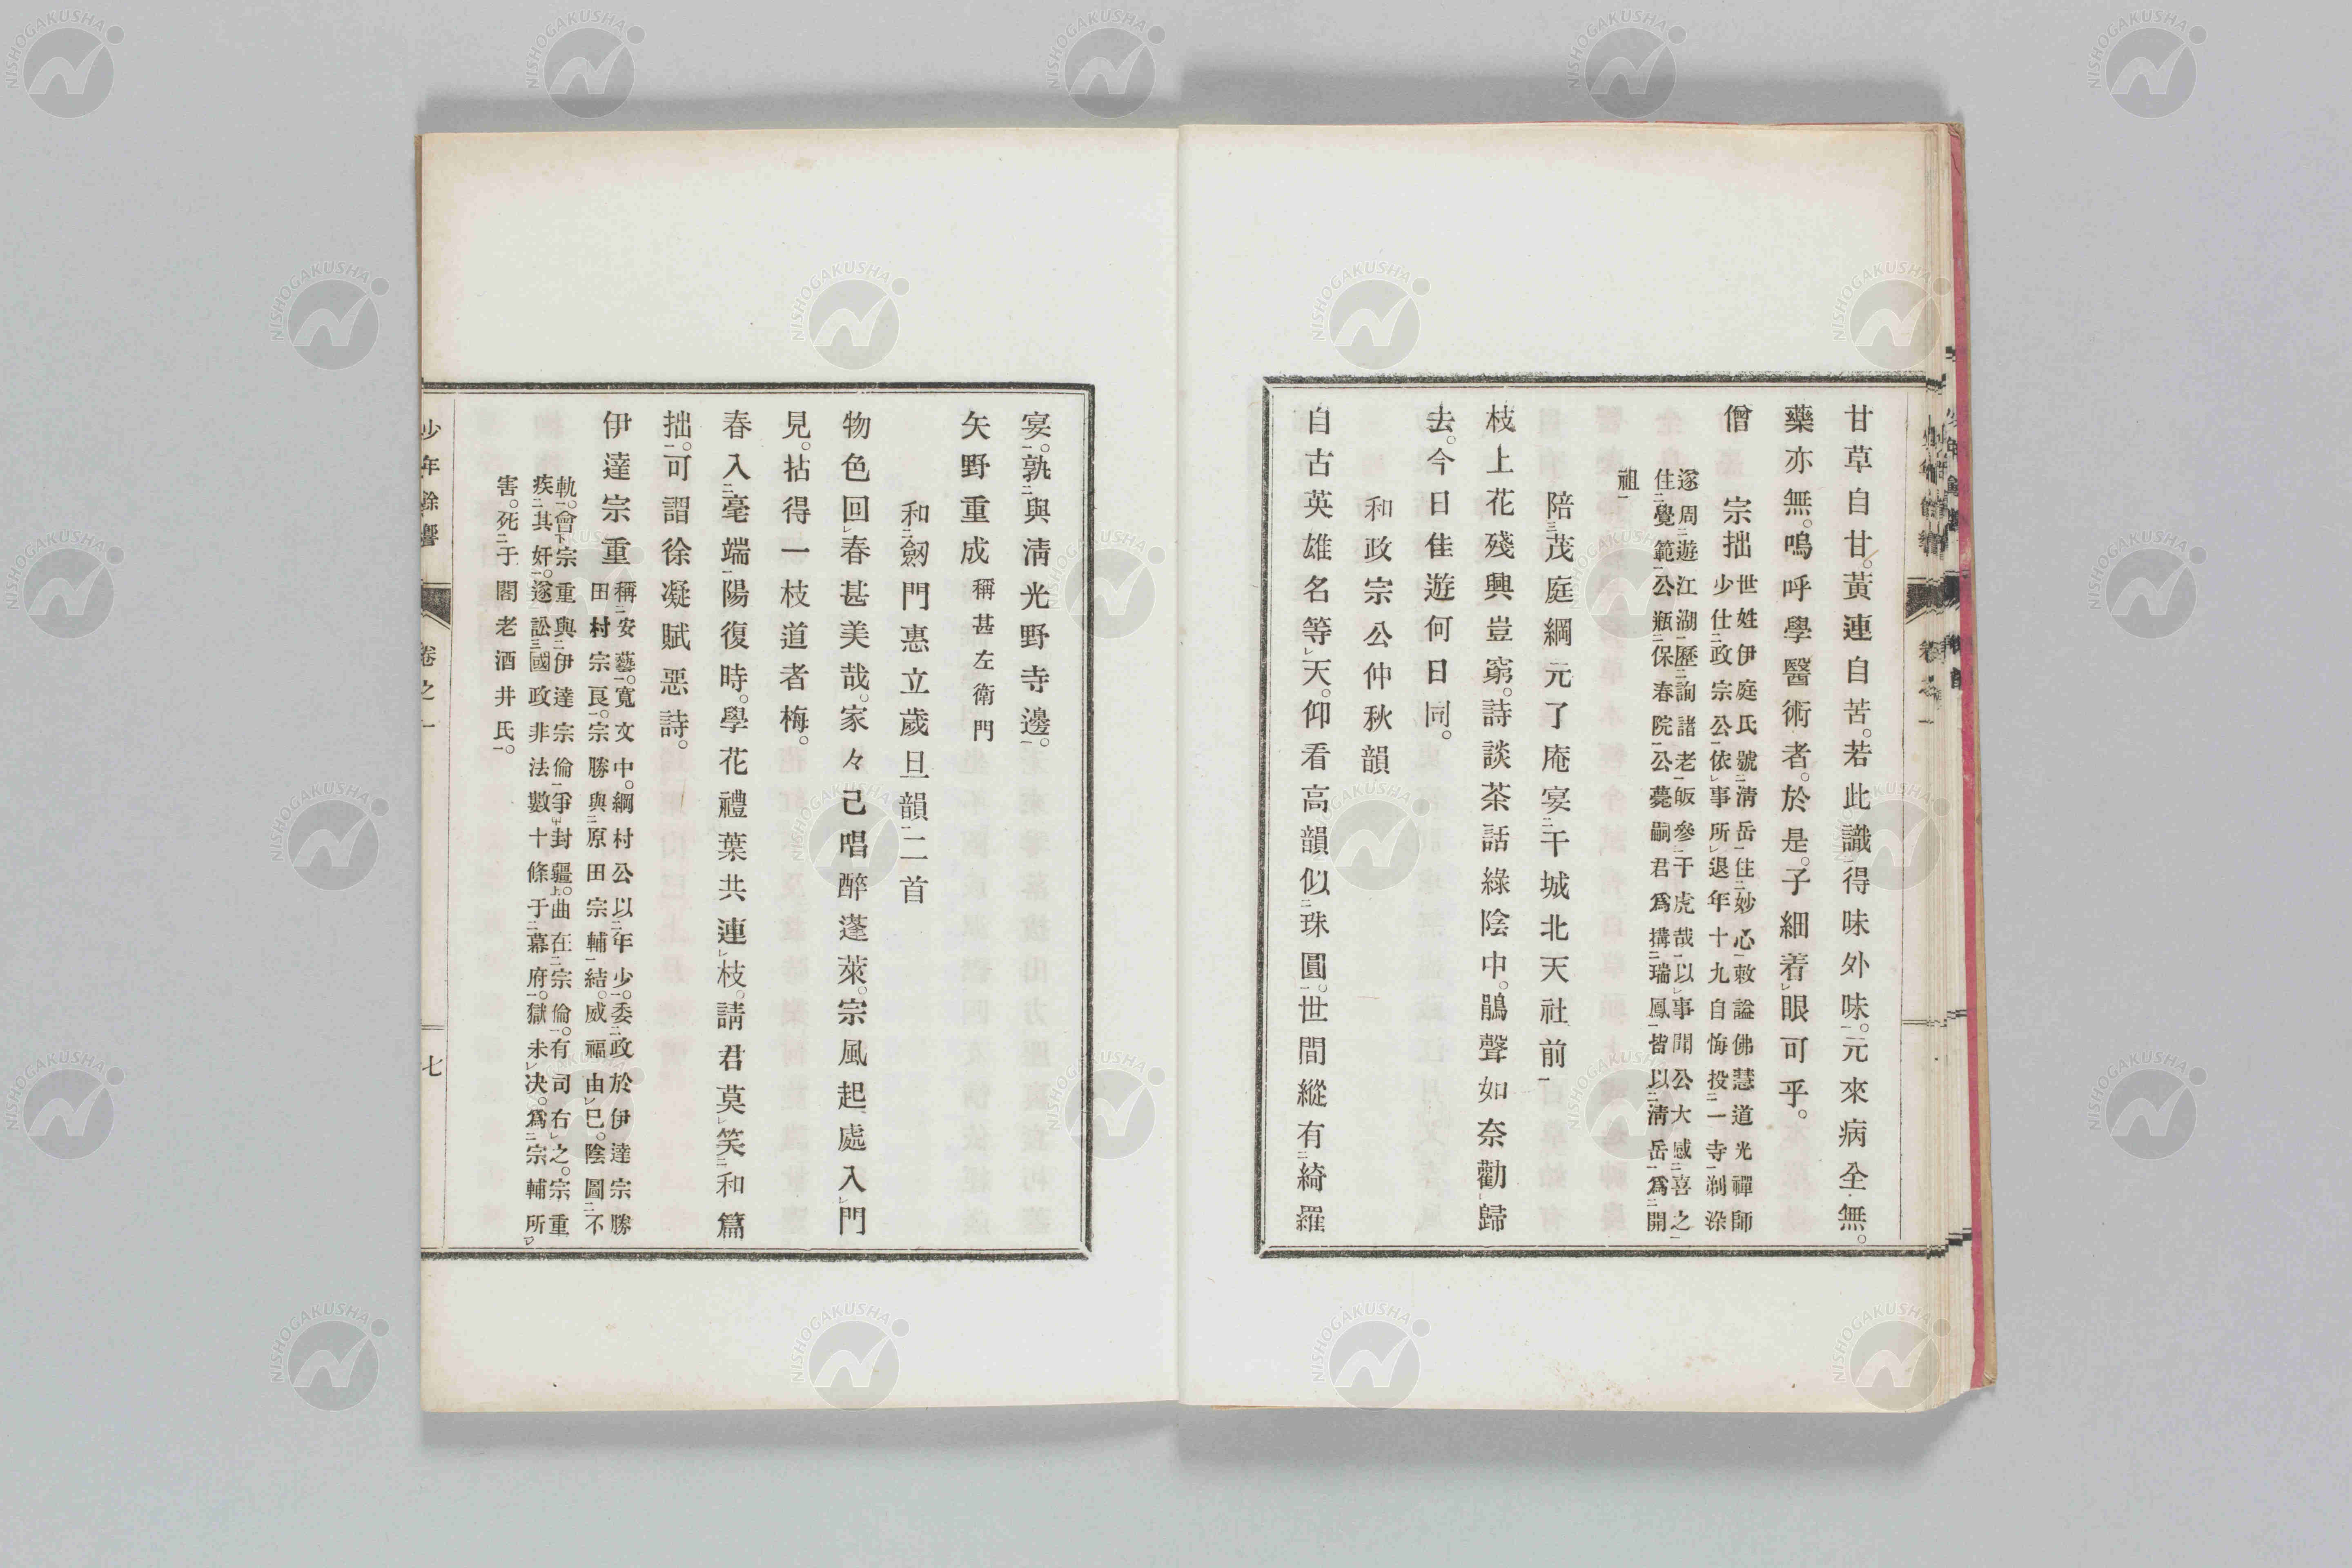 甘草自甘。黃連自苦。若此識得味外味。元來病全無。
藥亦無。嗚呼學醫術者。於是。子細着眼可乎。
僧　宗拙
世姓伊庭氏號淸岳住妙心敕謚佛慧道光禪師
少仕政宗公依事所退年十九自悔投一寺剃染
遂周遊江湖歷詢諸老皈參于虎哉以事聞公大感喜之
住覺範公瓶保春院公薨嗣君爲搆瑞鳳皆以淸岳爲開
祖
陪茂庭綱元了庵宴于城北天社前
枝上花殘興豈窮。詩談茶話綠陰中。鵑聲如奈勸歸
去。今日佳遊何日同。
和政宗公仲秋韻
自古英雄名等天。仰看高韻似珠圓。世間縱有綺羅
宴。孰與淸光野寺邊。
矢野重成　稱甚左衛門
和劔門惠立歲旦韻二首
物色回春甚美哉。家々已唱醉蓬萊。宗風起處入門
見。拈得一枝道者梅。
春入毫端陽復時。學花禮葉共連枝。請君莫笑和篇
拙。可謂徐凝賦惡詩。
伊達宗重
稱安藝。寬文中。綱村公以年少。委政於伊達宗勝
田村宗良。宗勝與原田宗輔結。威福由已。陰圖不
軌。會宗重與伊達宗倫爭封疆。曲在宗倫。有司右之。宗重
疾其奸。遂訟國政非法數十條于幕府。獄未決。爲宗輔所
害。死于閣老酒井氏。
少年餘響　卷之一　七
NISHOGAKUSHA